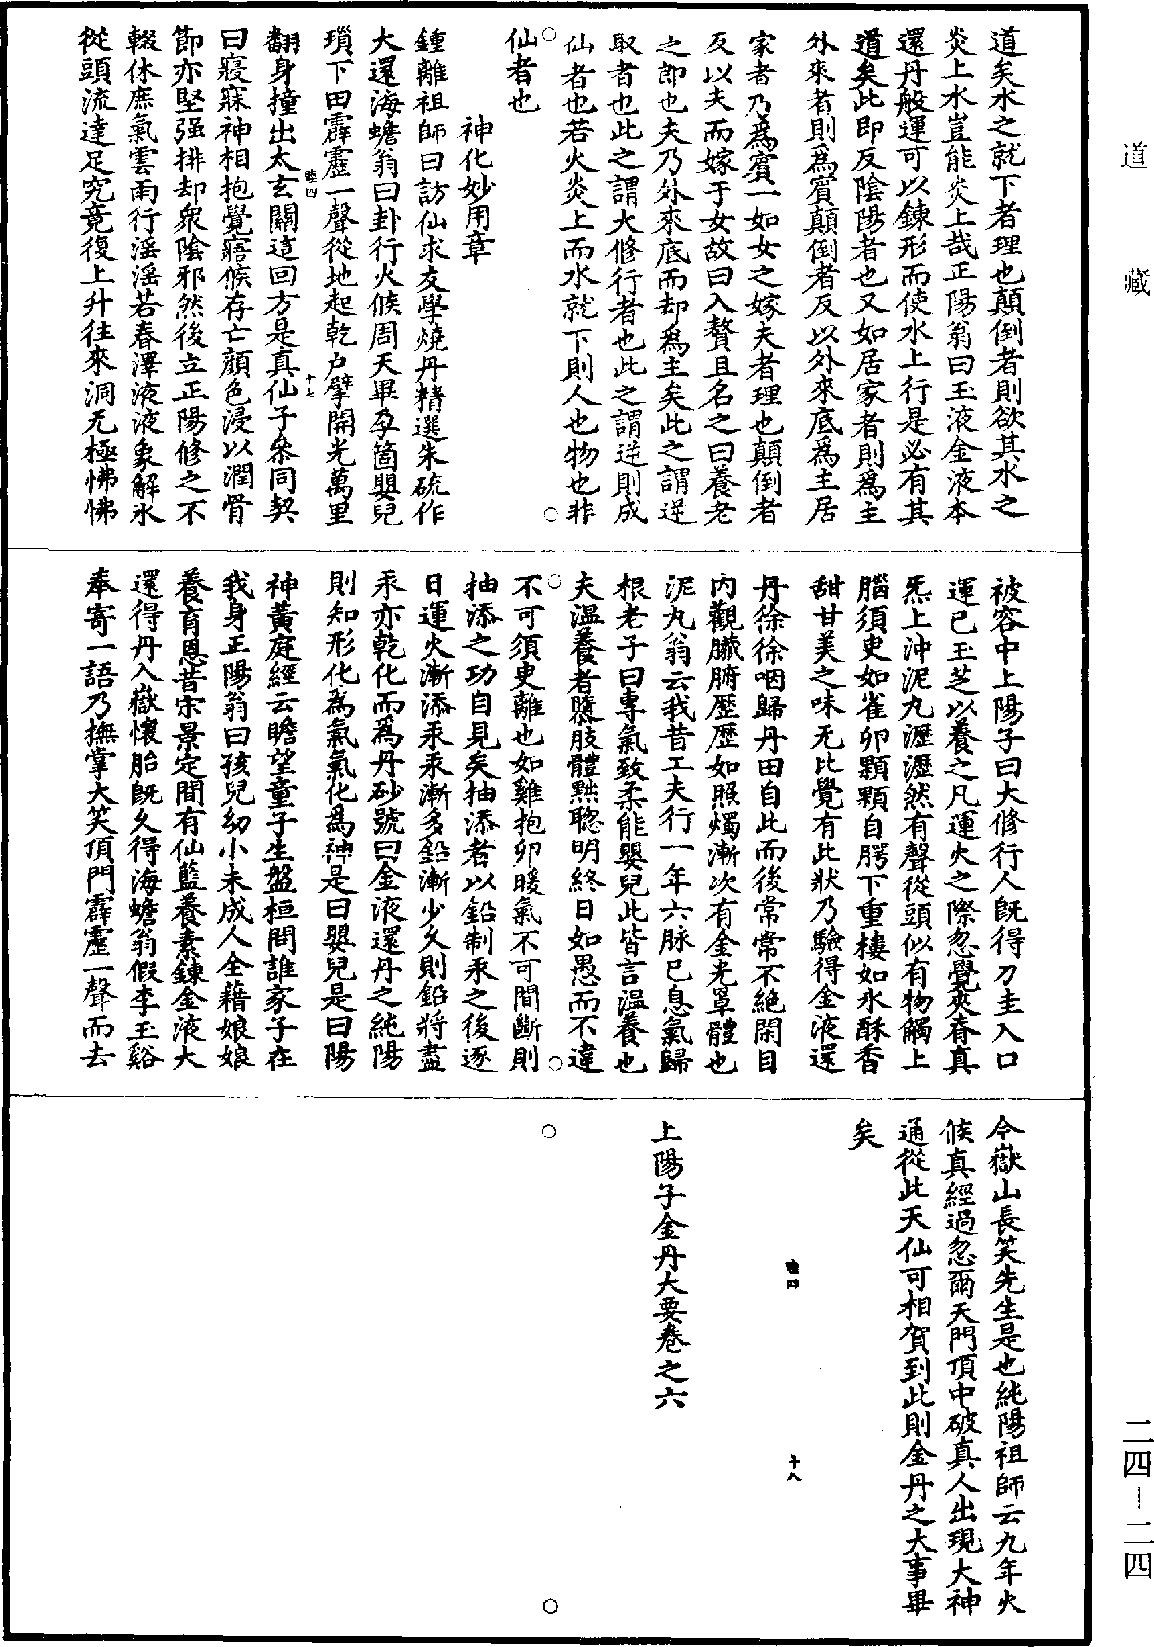 道藏
道矣水之就下者理也顛倒者則欲其水之
炎上水豈能炎上哉正陽翁曰玉液金液本
還丹般運可以鍊形而使水上行是必有其
道矣此即反陰陽者也又如居家者則為主
外來者則為賓顛倒者反以外來底為主居
家者乃為賓一如女之嫁夫者理也顛倒者
反以夫而嫁于女故曰入贅且名之曰養老
之郎也夫乃外來底而却為主矣此之謂逆
取者也此之謂大修行者也此之謂逆則成
仙者也若火炎上而水就下則人也物也非
仙者也
神化妙用章
鍾離祖師曰訪仙求友學燒丹精選朱硫作
大還海蟾翁曰卦行火候周天畢孕箇嬰兒
瑣下田霹靂一聲從地起乾户擘開光萬里
翻身撞出太玄關這回方是真仙子叅同契
曰寢寐神相抱覺寤候存亡顏色浸以潤骨
節亦堅强排却衆陰邪然後立正陽修之不
輟休庶氣雲雨行滛滛若春澤液液象解氷
從頭流達足究竟復上升往來洞无極怫怫
被容中上陽子曰大修行人既得刀圭入口
運已玉芝以養之凡運火之際忽覺夾脊真
炁上沖泥丸瀝瀝然有聲從頭似有物觸上
腦須臾如雀卵顆顆自腭下重樓如氷酥香
甜甘美之味无比覺有此狀乃驗得金液還
丹徐徐咽歸丹田自此而後常常不絶閑目
内觀臟腑歷歷如照燭漸次有金光罩體也
泥丸翁云我昔工夫行一年六脉已息氣歸
根老子曰專氣致柔能嬰兒此皆言温養也
夫溫養者隳肢體黜聰明終日如愚而不違
不可須臾離也如雞抱卵暖氣不可間斷則
抽添之功自見矣抽添者以鉛制汞之後逐
日運火漸添汞汞漸多鉛漸少久則鉛將盡
汞亦乾化而為丹砂號曰金液還丹之純陽
則知形化為氣氣化為神是曰嬰兒是曰陽
神黃庭經云瞻望童子坐盤桓問誰家子在
我身正陽翁曰孩兒幼小未成人全藉娘娘
養育恩昔宋景定間有仙藍養素鍊金液大
還得丹入嶽懷胎既久得海蟾翁假李玉谿
奉寄一語乃撫掌大笑頂門霹靂一聲而去
今嶽山長笑先生是也純陽祖師云九年火
候真經過忽爾天門頂中破真人出現大神
通從此天仙可相賀到此則金丹之大事畢
矣
十八
上陽子金丹大要卷之六
二四－二四